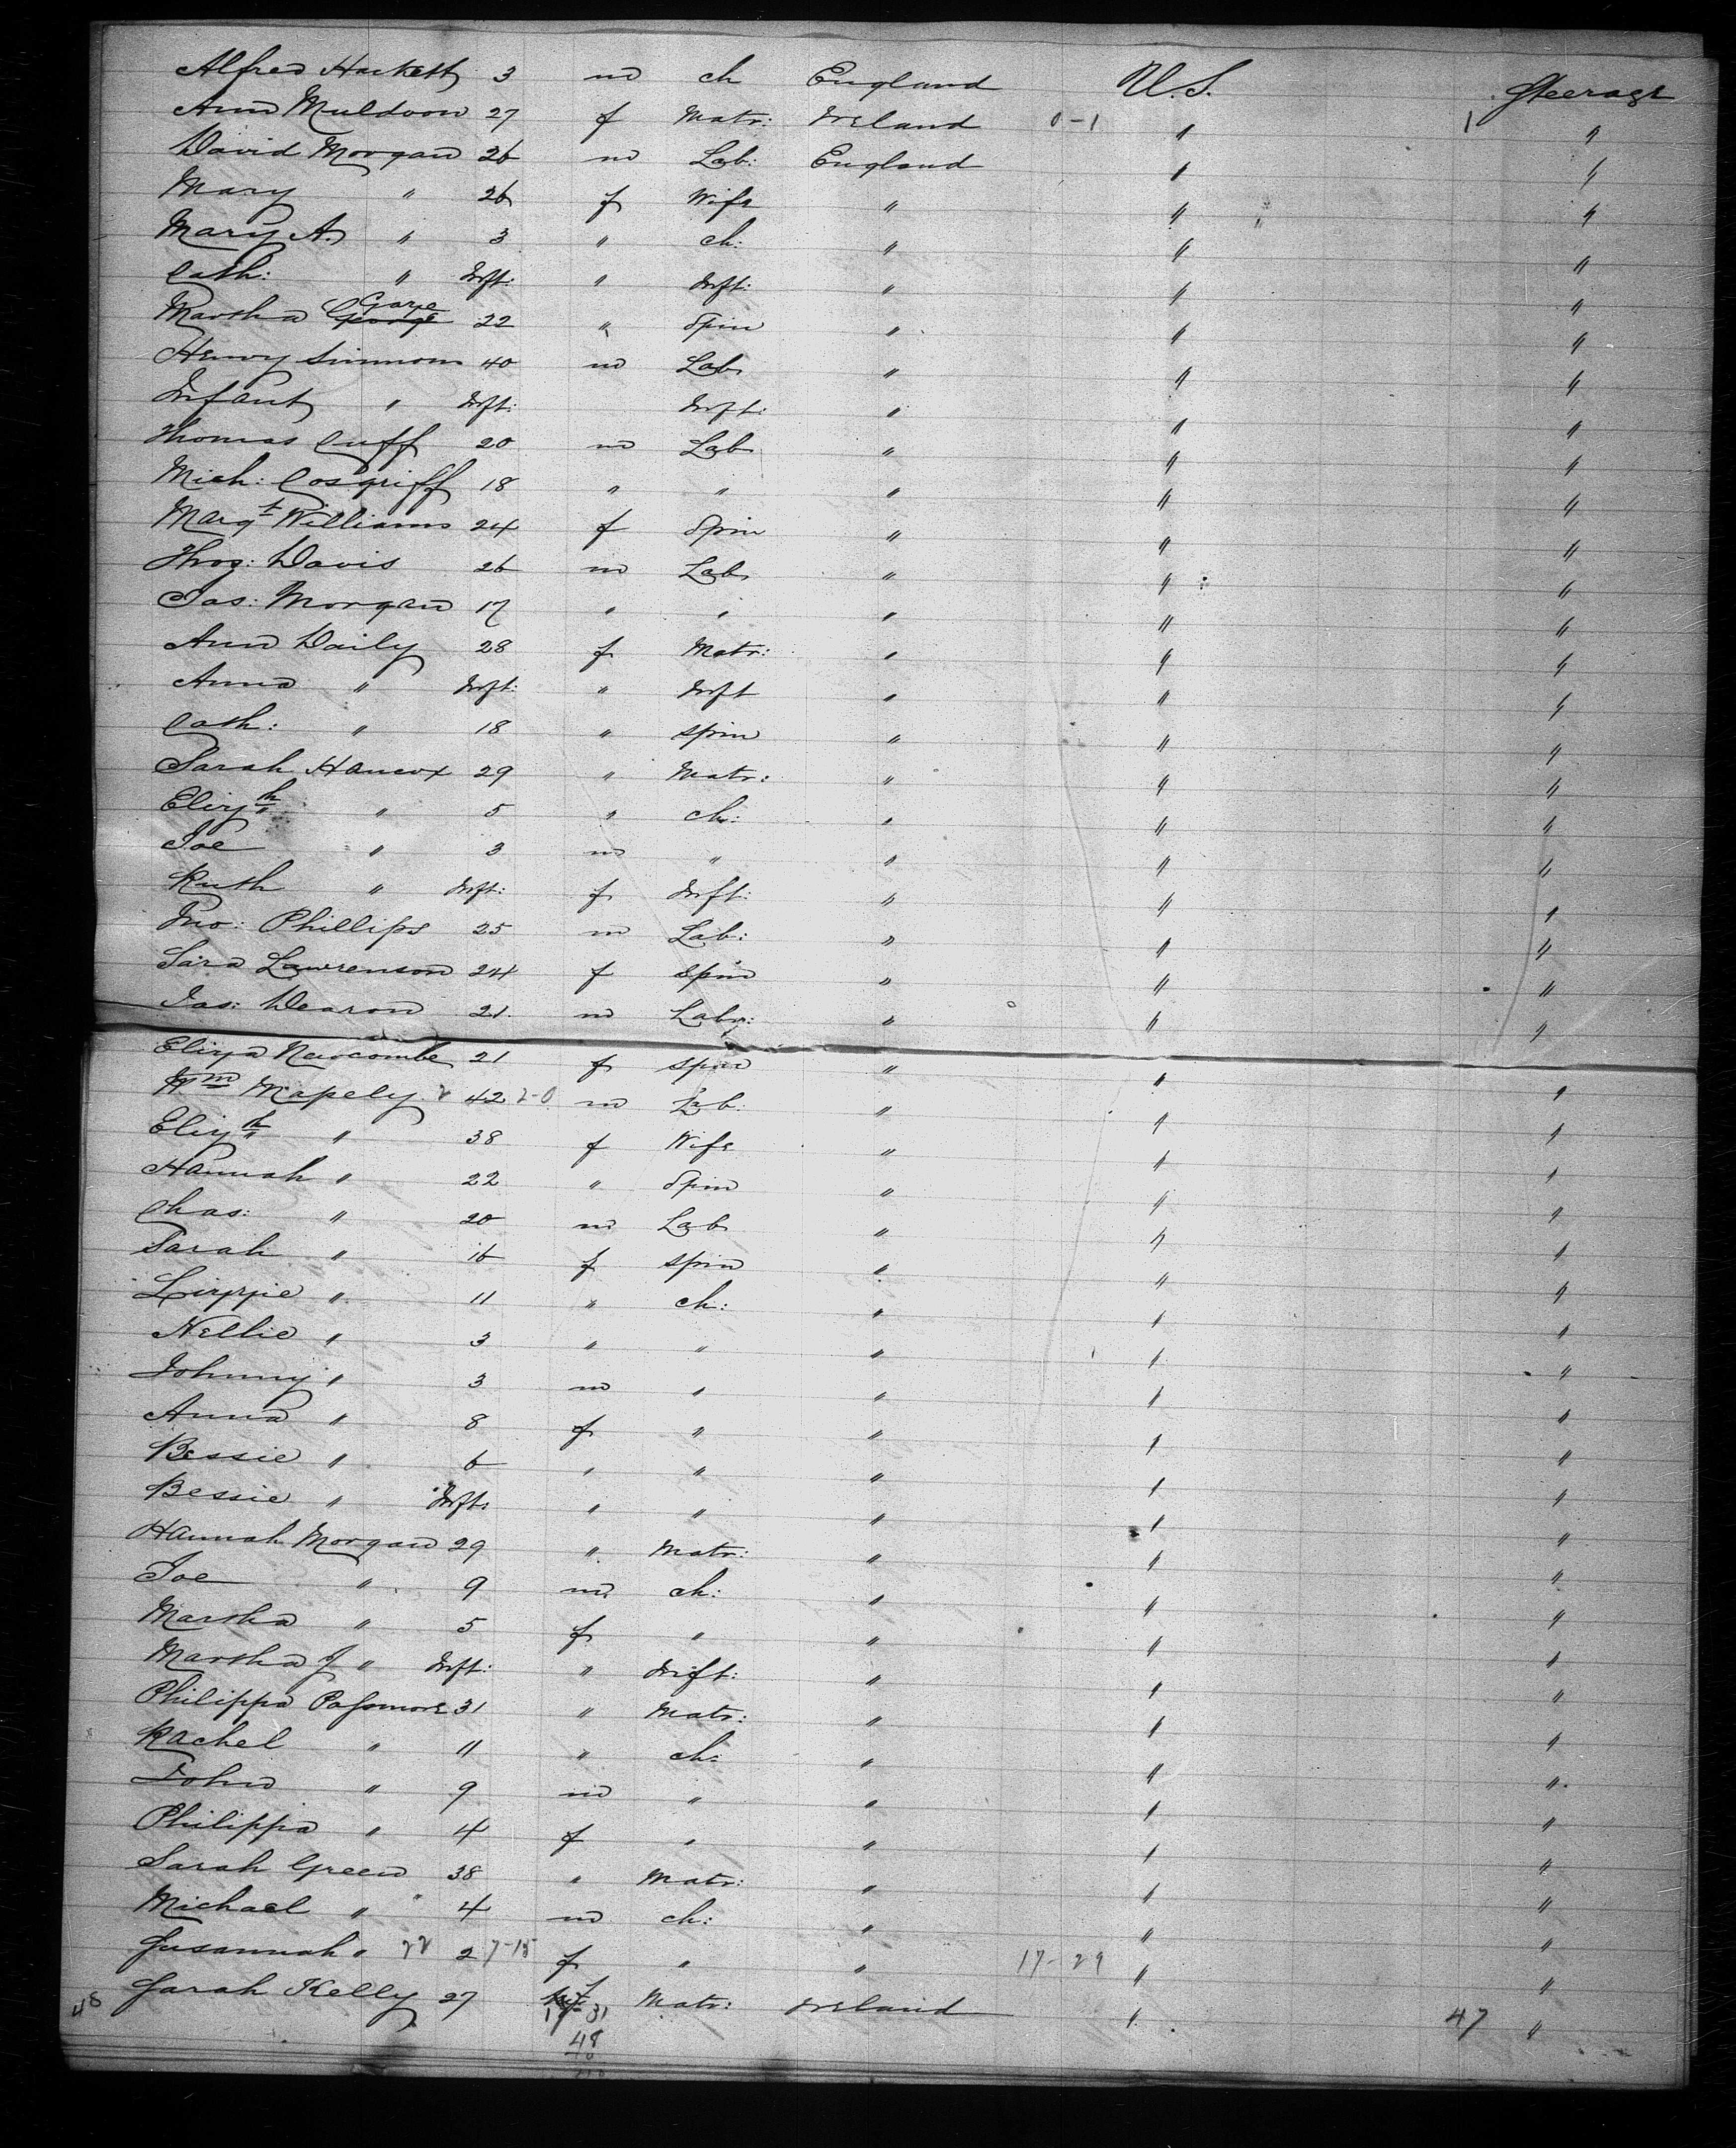 Alfred Hackett 3 m ch England U.S. Steerage
Ann Muldoon 27 f Matr: Ireland 0-1 " 1 "
David Morgan 26 m Lab: England " "
Mary " 26 f Wife " " "
Mary A. " 3 " ch: " " "
Cath: " Inft: " Inft: " " "
Martha George Gare 22 " Spin " " "
Henry Simmons 40 m Lab " " "
Infant " Inft: Inft: " " "
Thomas Cuff 20 m Lab " " "
Mich: Cosgriff 18 " " " " "
Margt Williams 24 f Spin " " "
Thos: Davis 26 m Lab " " "
Jas: Morgan 17 " " " " "
Ann Daily 28 f Matr: " " "
Anna " Inft: " Inft " " "
Cath: " 18 " spin " " "
Sarah Hancox 29 " Matr: " " "
Elizth " 5 " ch: " " "
Joe " 3 m " " " "
Ruth " Inft: f Inft: " " "
Jno: Phillips 25 m Lab: " " "
Sara Lawrenson 24 f Spin " " "
Jas: Dearon 21 m Labr: " " "
Eliza Newcombe 21 f spin " " "
Wm Mapely 2 42 2-0 m Lab: " " "
Elizth " 38 f Wife " " "
Hannah " 22 " Spin " " "
Chas: " 20 m Lab " " "
Sarah " 16 f spin " " "
Lizzie " 11 " ch: " " "
Nellie " 3 " " " " "
Johnny " 3 m " " " "
Anna " 8 f " " " "
Bessie " 6 " " " " "
Bessie " Inft: " " " " "
Hannah Morgan 29 " Matr: " " "
Joe " 9 m ch: " " "
Martha " 5 f " " " "
Martha J " Inft: " Inft: " " "
Philippa Passmore 31 " Matr: " " "
Rachel " 11 " ch: " " "
John " 9 m " " " "
Philippa " 4 f " " " "
Sarah Green 38 " Matr: " " "
Michael " 4 m ch: " " "
Susannah " 22 2 7-15 f " " 17-29 " "
48 Sarah Kelly 27 f Matr: Ireland " 47 "
17-31
48